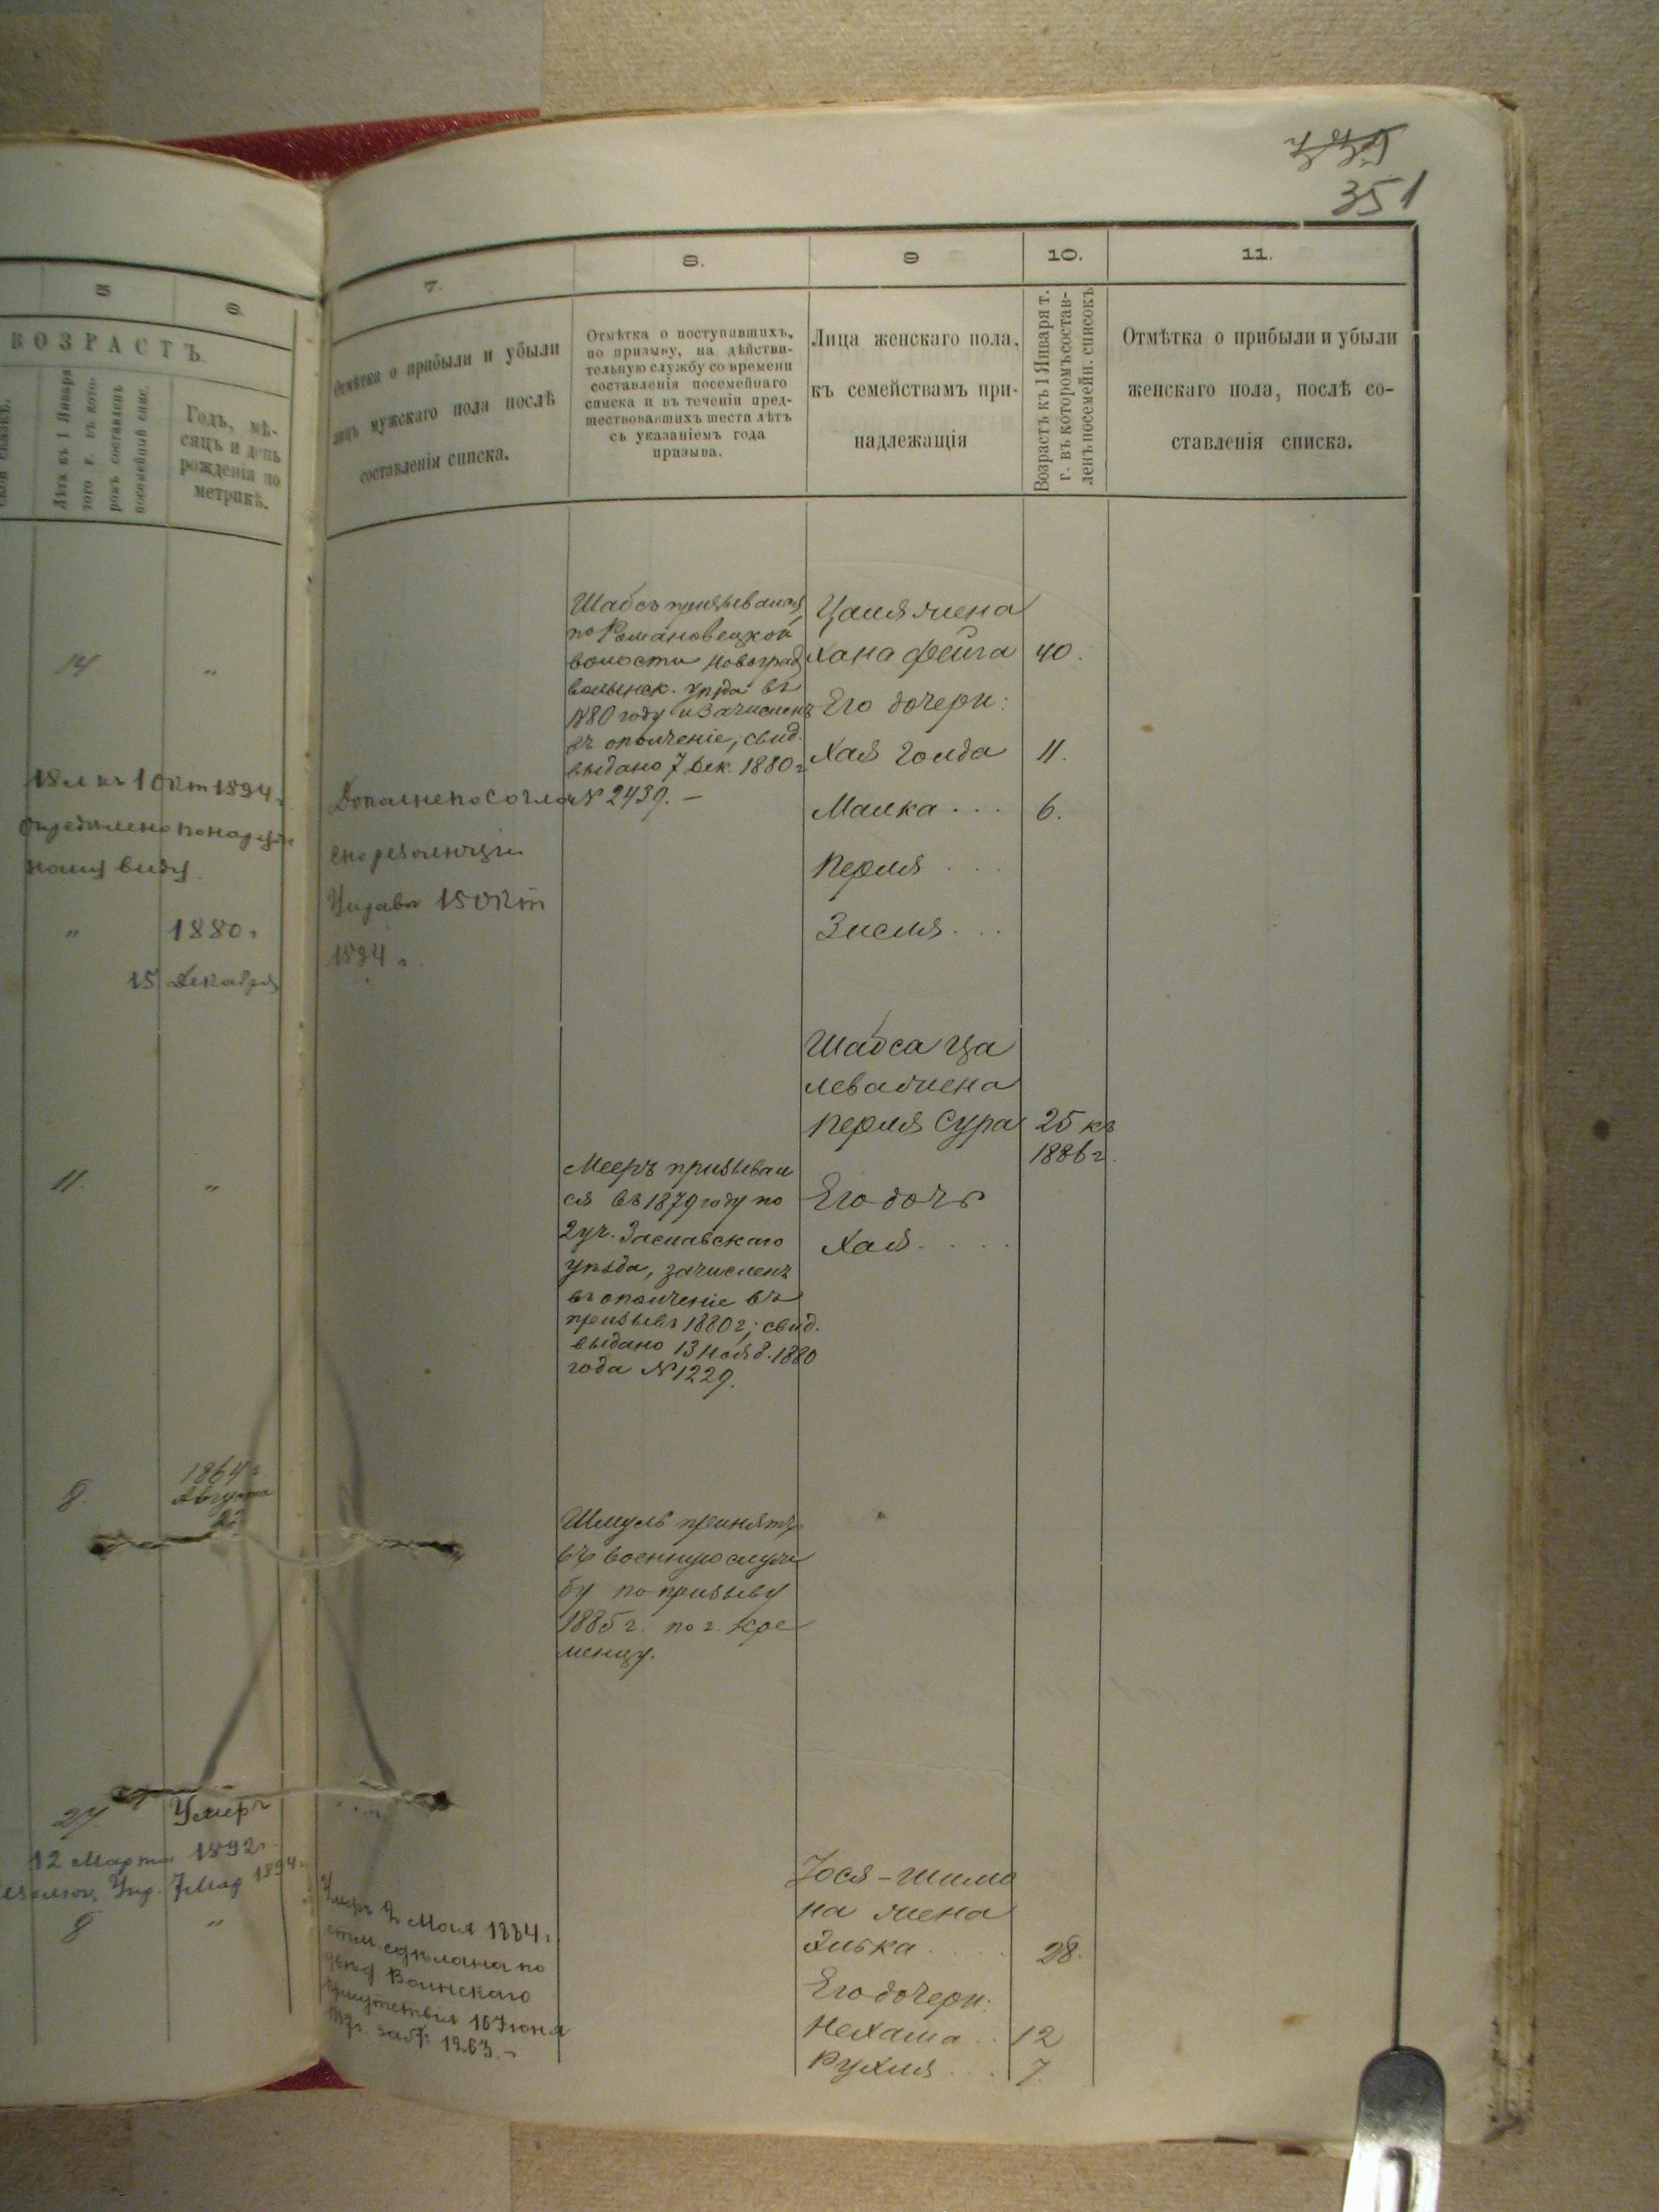 351
5
6.
ВОЗРАСТЪ.
Лѣтъ къ 1 Января
того г. въ кото-
ромъ составленъ
посемейный спис.
Годъ, мѣ-
сяцъ и день
рожденія по
метрикѣ.
14
"
18 л къ 1 Окт 1894
опредѣлено по наруж
ному виду.
" 1880 г
15 Декабря
11. "
8.
1864 г
Августа
27
Умеръ
12 Марта 1892 г
7 Мая 1894 г
8 "
7.
Отмѣтка о прибыли и убыли
лицъ мужскаго пола послѣ
составленія списка.
1894 г.
Умеръ 2 Мая 1884 г
отм. сдѣлана по
Воинскаго
присутствія 16 Іюня
за № 1263.-
8.
Отмѣтка о поступившихъ,
по призыву, на дѣйстви-
тельную службу со времени
составленія посемейнаго
списка и въ теченіи пред-
шествовавшихъ шести лѣтъ
съ указаніемъ года
призыва.
Шабсъ призывался
по Романовецкой
волости Новоград
волынск. уѣзда въ
1880 году и зачисленъ
въ ополченіе, свид.
выдано 7 Дек. 1880 г
№ 2439. -
Мееръ призывал
ся въ 1879 году по
2 уч. Заславскаго
уѣзда, зачисленъ
въ ополченіе въ
призывъ 1880 г; свид.
выдано 13 Нояб. 1880
года № 1229.
Шмуль принятъ
въ военную служ
бу по призыву
1885 г. по г. Кре
менцу.
9
Лица женскаго пола,
къ семействамъ при-
надлежащія
10.
Возрастъ къ 1 Января т.
г. въ которомъ состав-
ленъ посемейн. списокъ
Цаля жена
Хана Фейга 40.
Его дочери:
Хая Голда 11.
Малка . . . 6.
Перля . . .
Зисля . . .
Шабса Ца
лева жена
Перля Сура 25 къ
1886 г.
Его дочь
Хая . . . .
Іося-Шимо
на жена
Зибка . . . . 28.
Его дочери:
Нехама . . 12
Рухля . . . 7.
11.
Отмѣтка о прибыли и убыли
женскаго пола, послѣ со-
ставленія списка.